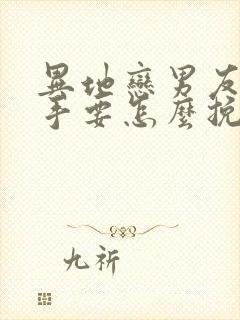 異地戀男友
手要怎麼挽
九祈